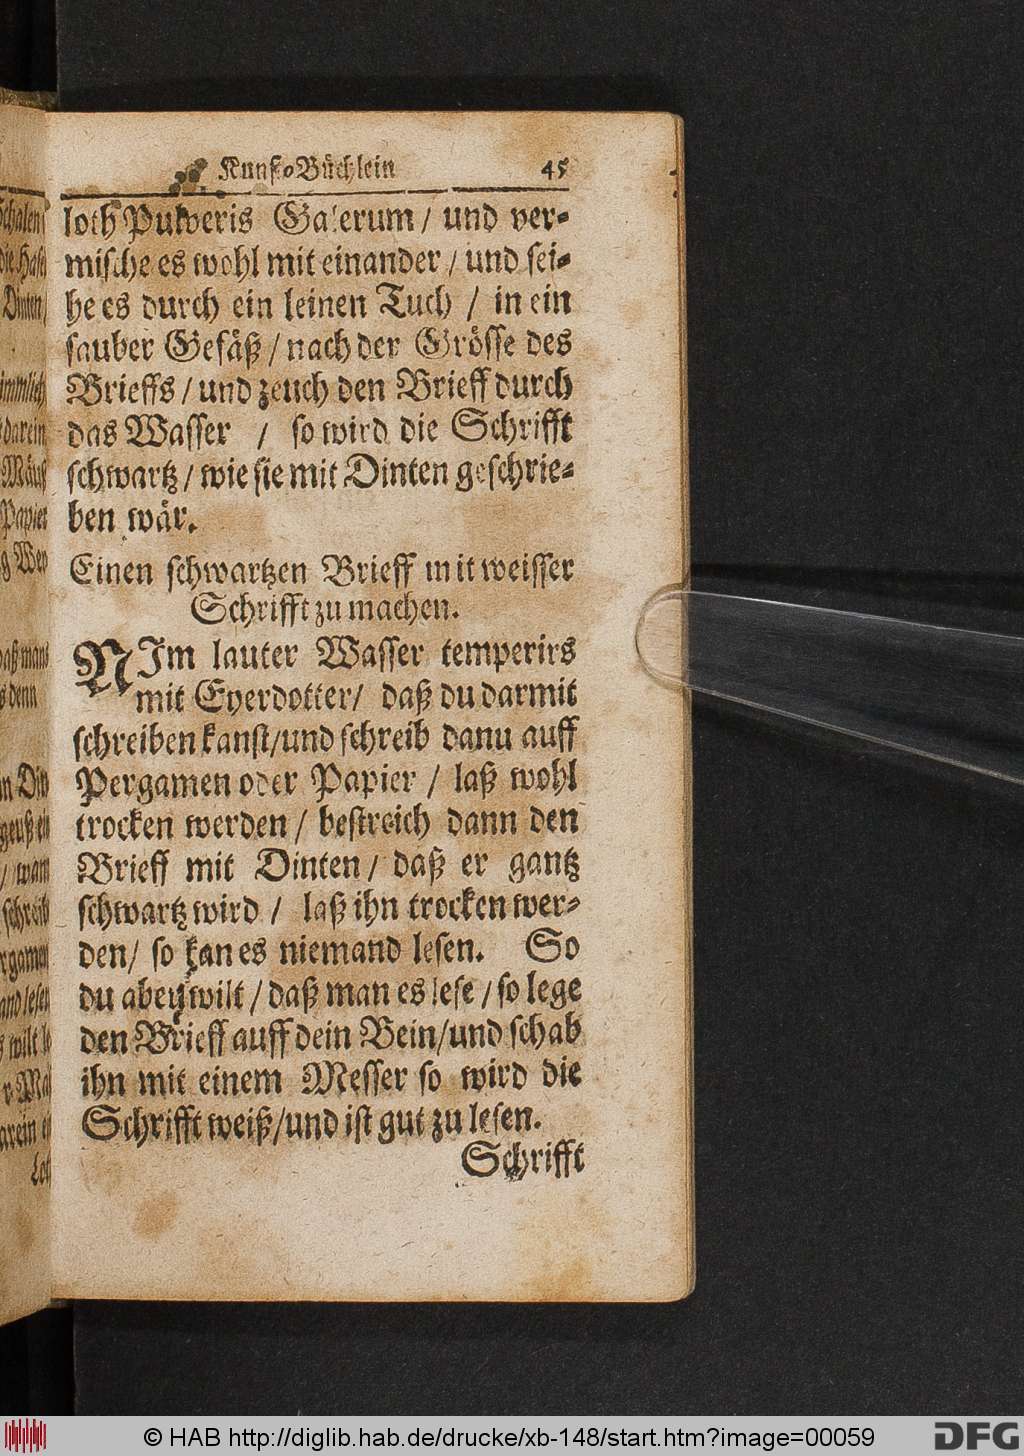 Kunst-Büchlein 45
loth Pulveris Galerum / und ver-
mische es wohl mit einander / und sei-
he es durch ein leinen Tuch / in ein
sauber Gefäß / nach der Grösse des
Brieffs / und zeuch den Brieff durch
das Wasser / so wird die Schrifft
schwartz / wie sie mit Dinten geschrie-
ben wär.
Einen schwartzen Brieff mit weisser
Schrifft zu machen.
NIm lauter Wasser temperirs
mit Eyerdotter / daß du darmit
schreiben kanst / und schreib danu auff
Pergamen oder Papier / laß wohl
trocken werden / bestreich dann den
Brieff mit Dinten / daß er gantz
schwartz wird / laß ihn trocken wer-
den / so kan es niemand lesen. So
du aber wilt / daß man es lese / so lege
den Brieff auff dein Bein / und schab
ihn mit einem Messer so wird die
Schrifft weiß / und ist gut zu lesen.
Schrifft
© HAB http://diglib.hab.de/drucke/xb-148/start.htm?image=00059
DFG